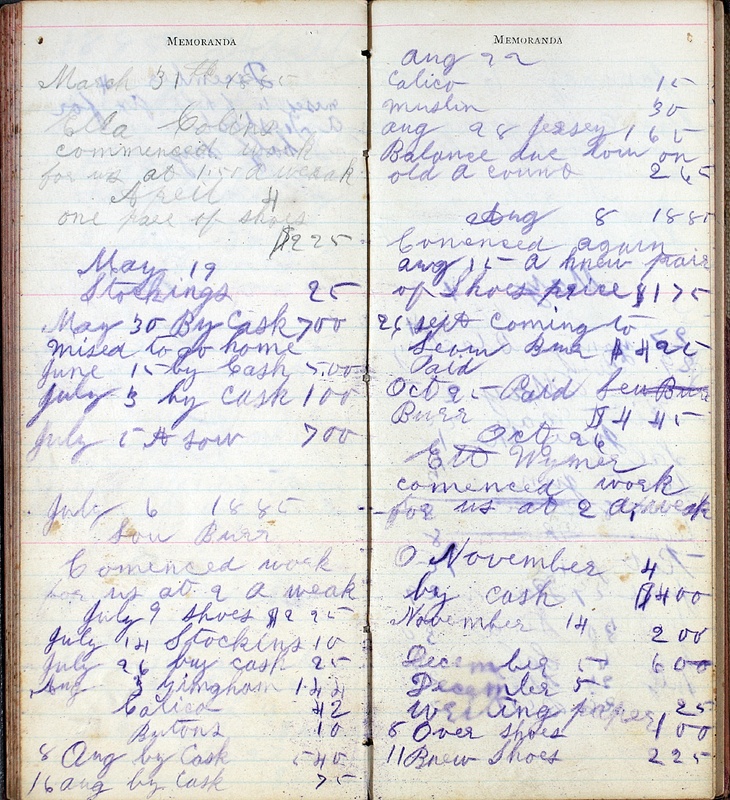 MEMORANDA
March 31th 1885
Ella Colins
commenced work
for us at 1.50 a weak
April 4
one pare of shoes
$2 25
May 19
Stockings 25
May 30 By Cash 700
mised to go home
June 15 by Cash 500
July 3 by Cash 100
July 5 A sow 700
July 6 1885
Lou Burr
Comenced work
for us at 2 a weak
July 9 shoes $2 25
July 14 Stockins 10
July 26 by cash 25
Aug 3 Gingham 144
Calico 42
Butons 10
8 Aug by Cash 540
16 aug by Cash 75
MEMORANDA
aug 22
Calico 15
muslin 30
aug 28 Jersey 165
Balance due low on
old a count 265
Aug 8 1885
Comenced again
aug 15 A knew pair
of Shoes price $175
26 sept coming to
Burr $ 4 25
Paid
Oct 25 Paid Burr
Burr $4 45
Oct 26
Ett Wymer
comenced work
for us at 2 a weak
O November 4
by cash $400
November 14
200
December 5 600
December 5
writing paper 25
8 Over shoes 100
11 Bnew Shoes 225